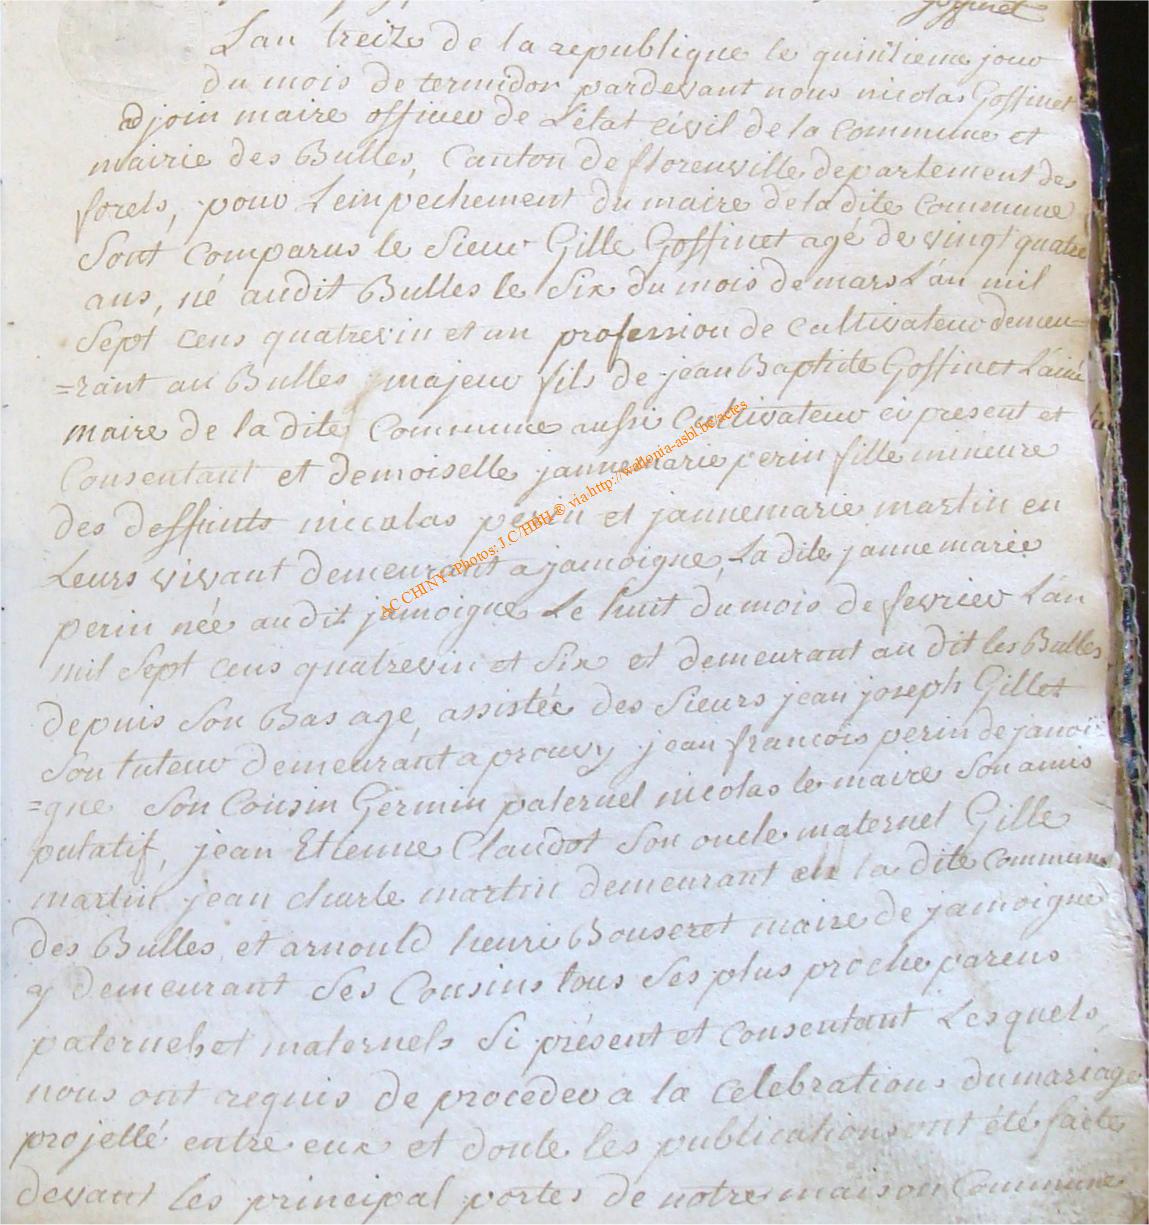 Goffinet
Lan treize de la republique le quinsieme jour
du mois de termidor pardevant nous nicolas Goffinet
adjoin maire officier de L'état civil de la commune et
mairie des Bulles, Canton de florenville departement des
forets, pour Lempechement du maire de la dite commune
Sont comparus le Sieur Gille Goffinet agé de vingt quatre
ans, né audit Bulles le Six du mois de mars L'an mil
Sept cens quatrevin et un profession de cultivateur demeu=
=rant au Bulles majeur fils de jean Baptiste Goffinet L'ainé
maire de la dite Commune aussi Cultivateur ci present et
Consentant et demoiselle jannemarie perin fille mineure
des deffunts niccolas perin et jannemarie martin en
Leurs vivant demeurant a jamoigne, La dite jannemarie
perin née audit jamoigne Le huit du mois de fevrier L'an
mil Sept cens quatrevin et Six et demeurant au dit les Bulles
depuis Son Bas age, assistée des Sieurs jean joseph Gillet
Son tuteur demeurant a prouvy jean francois perin de jamoi=
=gne Son Cousin Germin paternel nicolas le maire Son amis
putatif, jean Etienne Claudot Son oncle maternel Gille
martin jean charle martin demeurant en la dite commune
des Bulles, et arnould henri Bouseret maire de jamoigne
y demeurant Ses Cousins tous Ses plus proche parens
paternels et maternels Si présent et consentant Lesquels,
nous ont requis de proceder a la celebrations du mariage
projetté entre eux et donte les publications ont été faite
devant les principal portes de notre maison Commune
AC CHINY - Photos: J.C/HBH ® via http://wallonia-asbl.be/actes